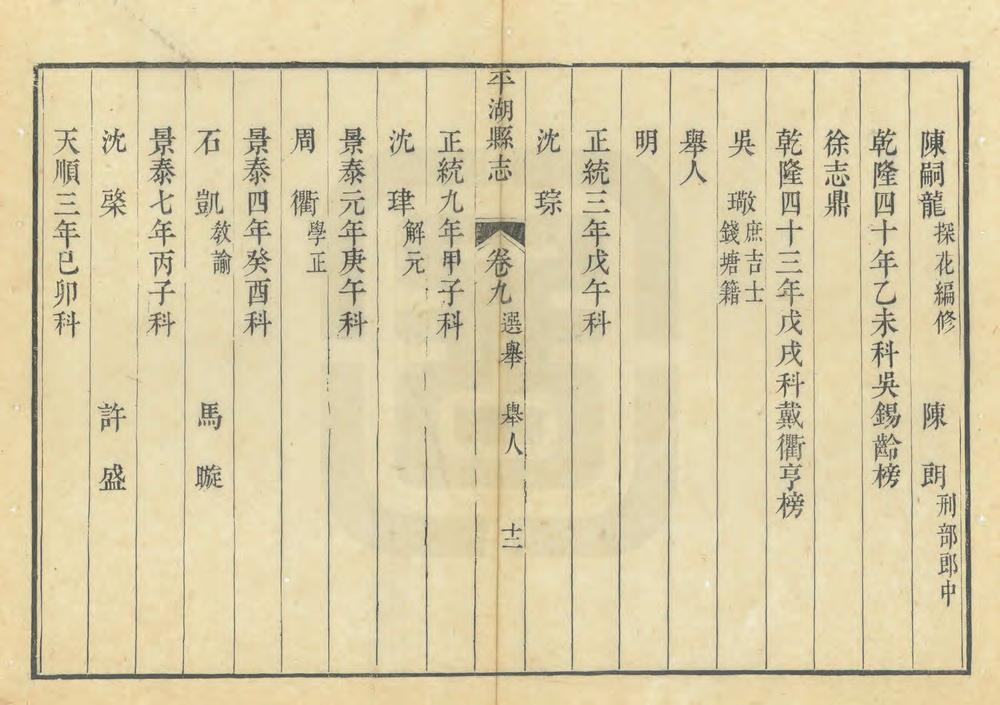 陳嗣龍探花編修 陳朗刑部郎中
乾隆四十年乙未科吳錫齡榜
徐志鼎
乾隆四十三年戊戌科戴衢亨榜
吳璥庶吉士錢塘籍
舉人
明
正統三年戊午科
沈琮
平湖縣志 卷九 選舉 舉人 十二
正統九年甲子科
沈珒解元
景泰元年庚午科
周衢學正
景泰四年癸酉科
石凱教諭 馬暶
景泰七年丙子科
沈棨 許盛
天順三年己卯科